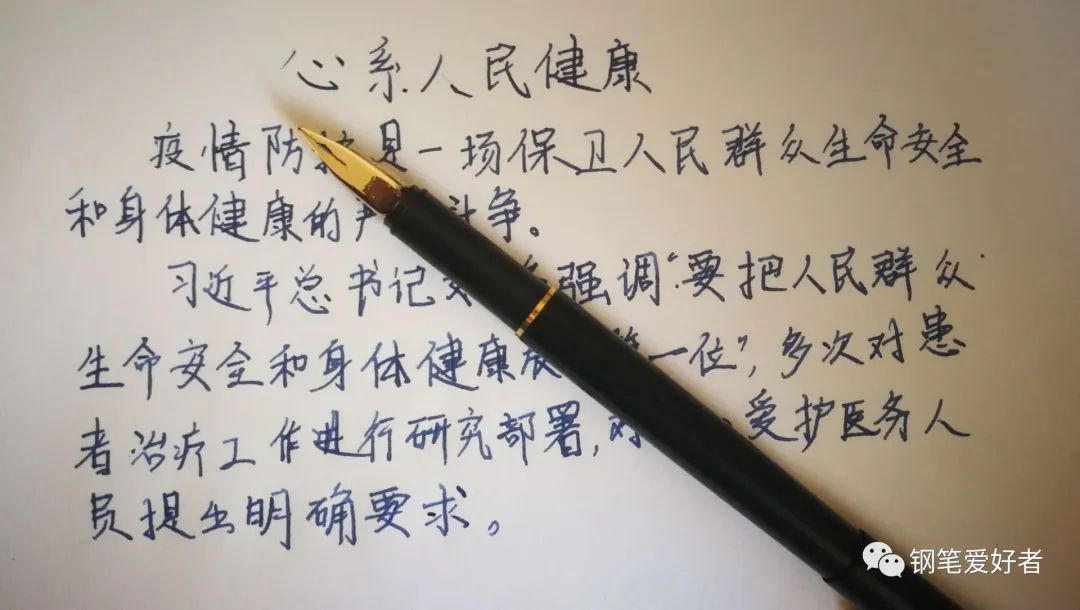 心系人民健康
疫情防是一场保卫人民群众生命安全
和身体健康的严斗争。
习近平总书记强调“要把人民群众
生命安全和身体健康第一位”,多次对患
者治疗工作进行研究部署,对护医务人
员提出明确要求。
钢笔爱好者